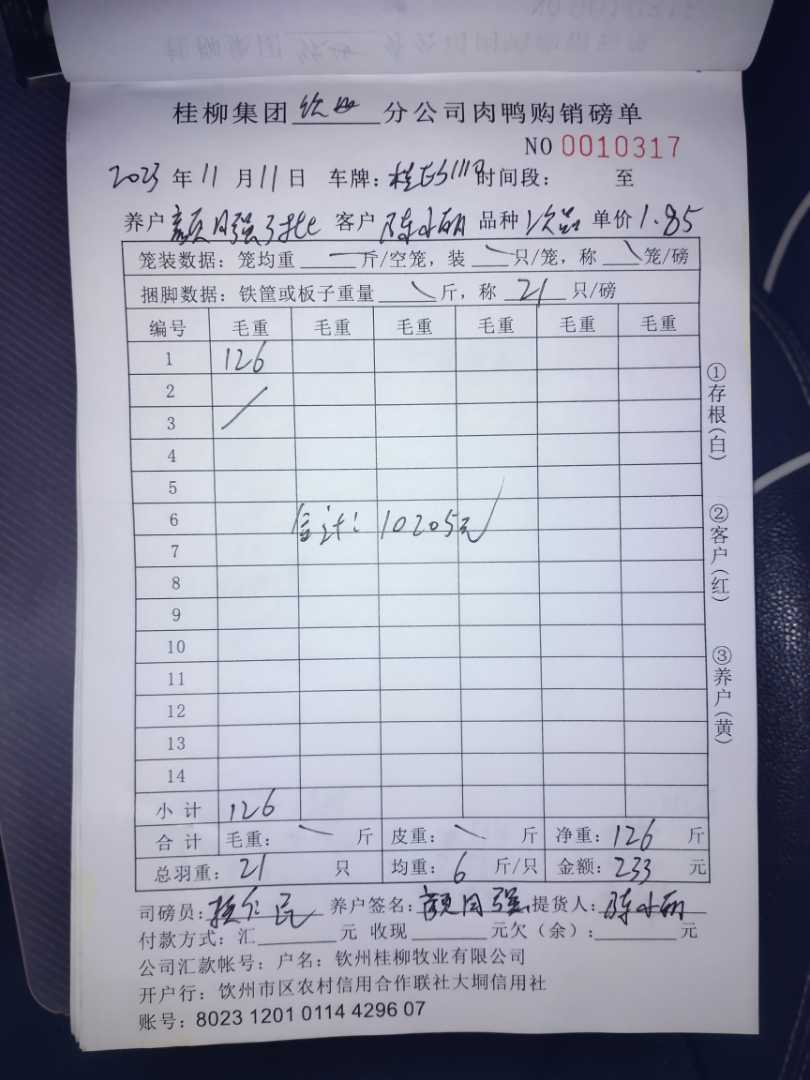 桂柳集团 钦州 分公司肉鸭购销磅单
NO 0010317
2023 年 11 月 11 日 车牌: 时间段: 至
养户 颜月强 客户 陈小丽 品种 次品 单价 1.85
笼装数据: 笼均重 斤/空笼, 装 只/笼, 称 笼/磅
捆脚数据: 铁筐或板子重量 斤, 称 21 只/磅
编号 毛重 毛重 毛重 毛重 毛重 毛重
1 126
2
3
4
5
6
合计: 10205元
7
8
9
10
11
12
13
14
小计 126
合计 毛重: 斤 皮重: 斤 净重: 126 斤
总羽重: 21 只 均重: 6 斤/只 金额: 233 元
司磅员: 养户签名: 颜月强 提货人: 陈小丽
付款方式: 汇 元 收现 元欠(余): 元
公司汇款帐号: 户名: 钦州桂柳牧业有限公司
开户行: 饮州市区农村信用合作联社大垌信用社
账号: 8023 1201 0114 4296 07
①存根(白)
②客户(红)
③养户(黄)